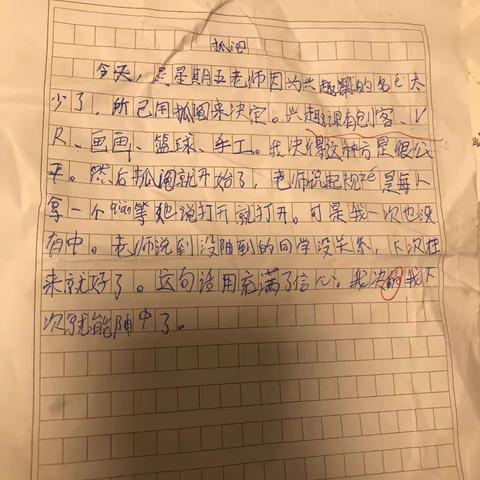 抓阄
今天，是星期五老师因为兴趣课的名é太
少了，所已用抓阄来决定。兴趣课有创客、V
R、画画、篮球、手工。我决得这种方是很公
平。然后抓阄就开始了，老师说起规zé是每人
拿一个 等她说打开就打开。可是我一次也没
有中。老师说到没阄到的同学没关系，下次在
来就好了。这句话用充满了信心。我决的我下
次就能阄中了。